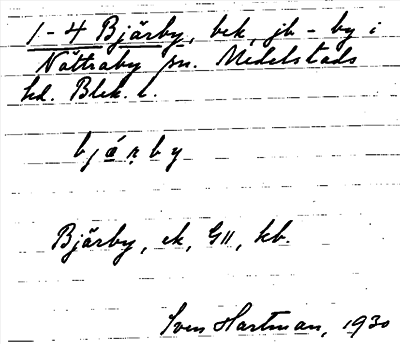 1-4 Bjärby, bek, jb - by i
Nättraby sn. Medelstads
hd. Blek. l.
bjárby
Bjärby, ek, GII, kb.
Sven Hartman, 1930